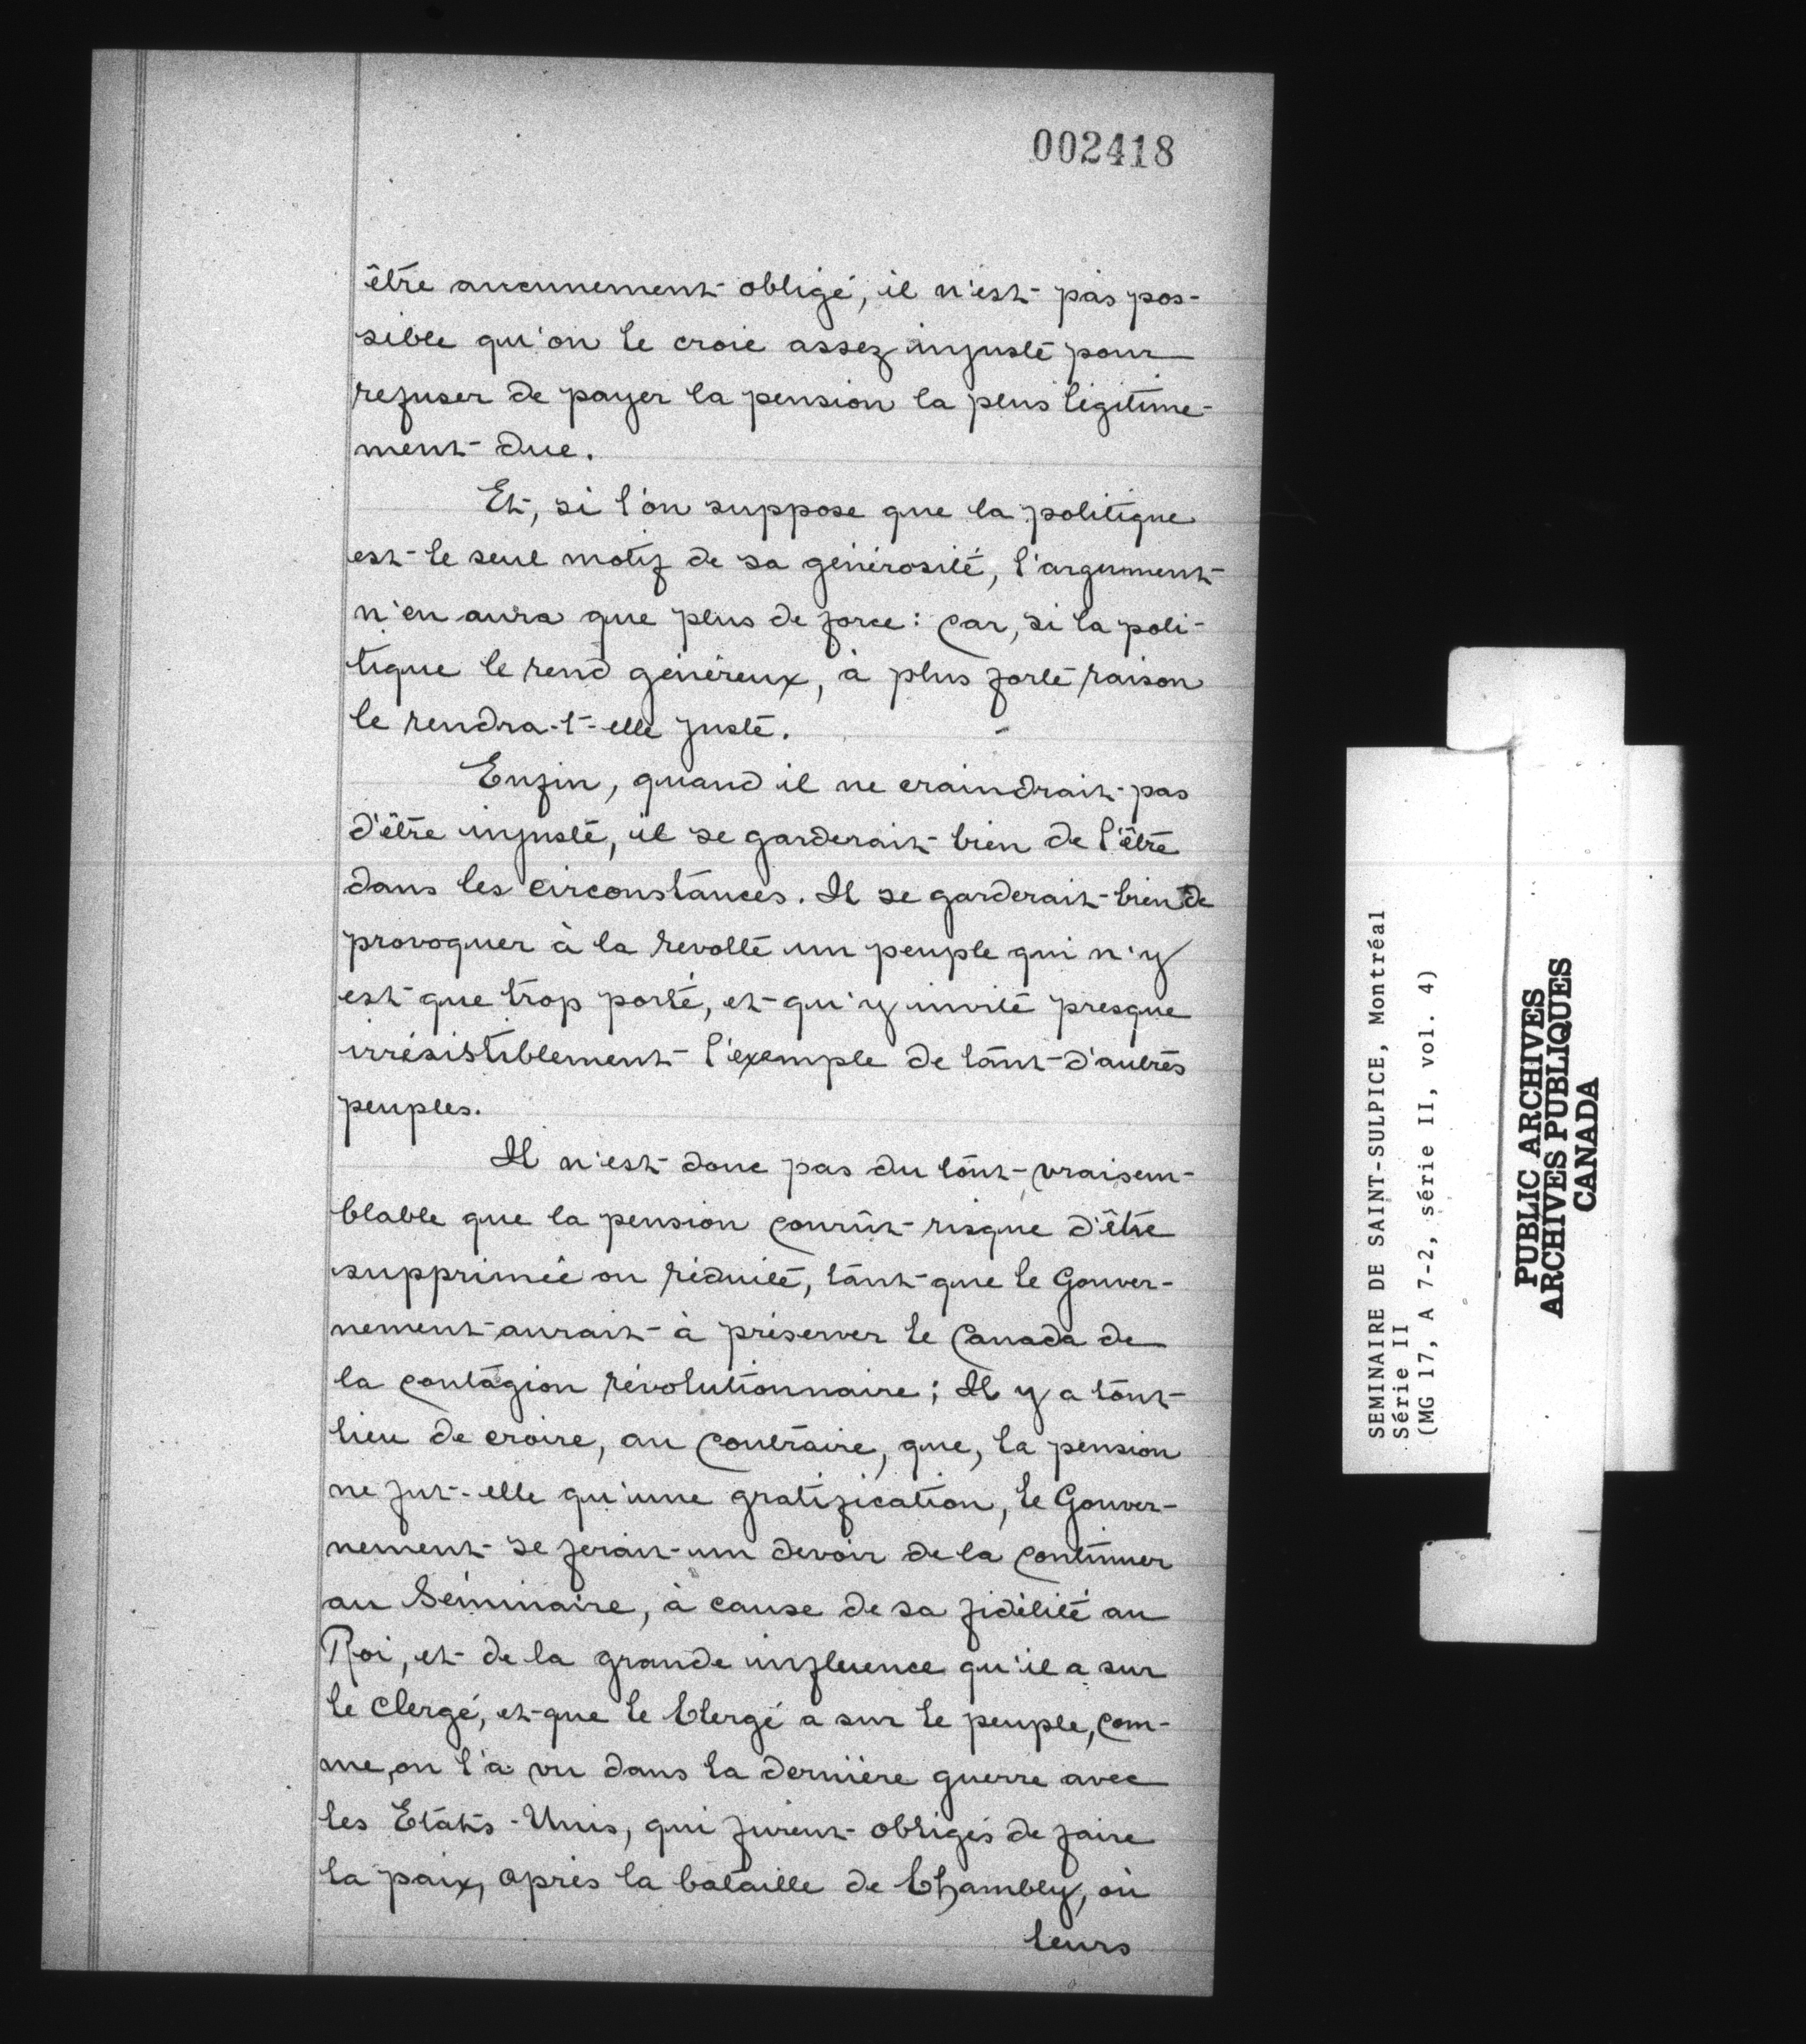 002418
être aucunement obligé, il n'est pas pos-
sible qu'on le croie assez injuste pour
refuser de payer la pension la plus légitime-
ment due.
Et, si l'on suppose que la politique
est le seul motif de sa générosité, l'argument
n'en aura que plus de force: car, si la poli-
tique le rend généreux, à plus forte raison
le rendra-t-elle juste.
Enfin, quand il ne craindrait pas
d'être injuste, il se garderait bien de l'être
dans les circonstances. Il se garderait bien de
provoquer à la révolte un peuple qui n'y
est que trop porté, et qu'y invite presque
irrésistiblement l'exemple de tant d'autres
peuples.
Il n'est donc pas du tout vraisem-
blable que la pension courût risque d'être
supprimée ou réduite, tant que le Gouver-
nement aurait à préserver le Canada de
la contagion révolutionnaire; Il y a tout
lieu de croire, au contraire, que, la pension
ne fut-elle qu'une gratification, le Gouver-
nement se ferait un devoir de la continuer
au Séminaire, à cause de sa fidélité au
Roi, et de la grande influence qu'il a sur
le clergé, et que le Clergé a sur le peuple, com-
me on l'a vu dans la dernière guerre avec
les Etats-Unis, qui furent obligés de faire
la paix, après la bataille de Chambly, où
leurs
SEMINAIRE DE SAINT-SULPICE, Montréal
Série II
(MG 17, A 7-2, série II, vol. 4)
PUBLIC ARCHIVES
ARCHIVES PUBLIQUES
CANADA